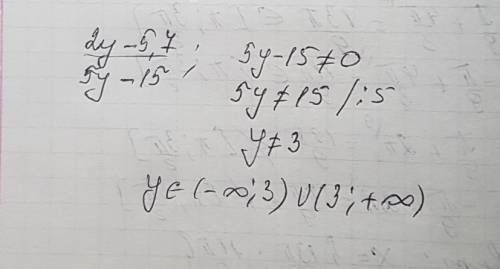 2y-5,7
5y-15 ;
5y-15≠0
5y≠15 /:5
y≠3
y∈(-∞;3)∪(3;+∞)